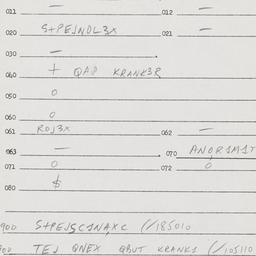 011 — 012 —
020 S+PEJNDL3X 021 —
030 —
040 + QAP KRANK3R
050 0
060 0
061 ROJ3X 062 —
063 — 070 ANQR1M1T
071 0 072 0
080 $
900 S+PEJSC1NAXC (/185010
900 TEJ QNEX QBUT KRANK1 (/105110